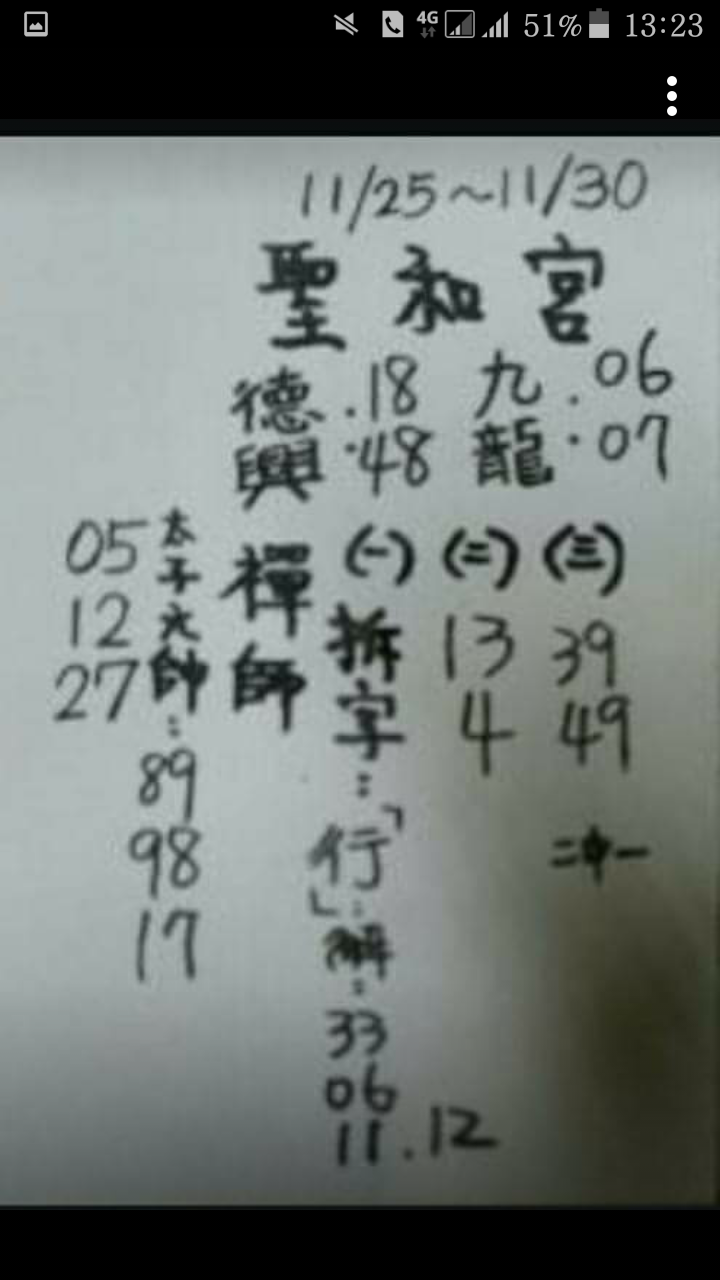 4G 51% 13:23
11/25~11/30
聖和宮
德興 .18 .48
九龍 .06 .07
禪師
(一) 拆字:「行」:解:33 06 11.12
(二) 13 4
(三) 39 49
二中一
太子元帥:89 98 17
05 12 27